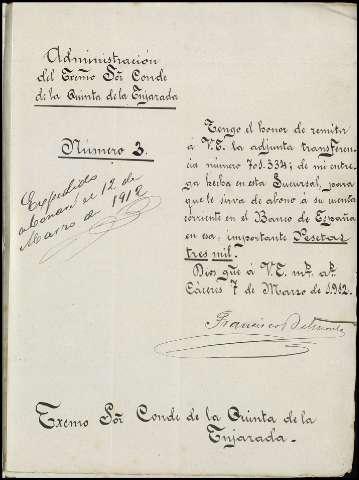 Administración
del Exmo Sõr Conde
de la Quinta de la Enjarada
Número 3.
Expedido
a Canara el 12 de
Marzo de 1912
Tengo el honor de remitir
á V.E. la adjunta transferen-
cia número 705.334; de mi entre-
ga hecha en esta Sucursal, para
que le sirva de abono á su cuenta
corriente en el Banco de España
en esa, importante Pesetas
tres mil.
Dios gũe á V.E. ms. as.
Cáceres 7 de Marzo de 1.912.
Francisco Belmonte
Exmo Sõr Conde de la Quinta de la
Enjarada.-